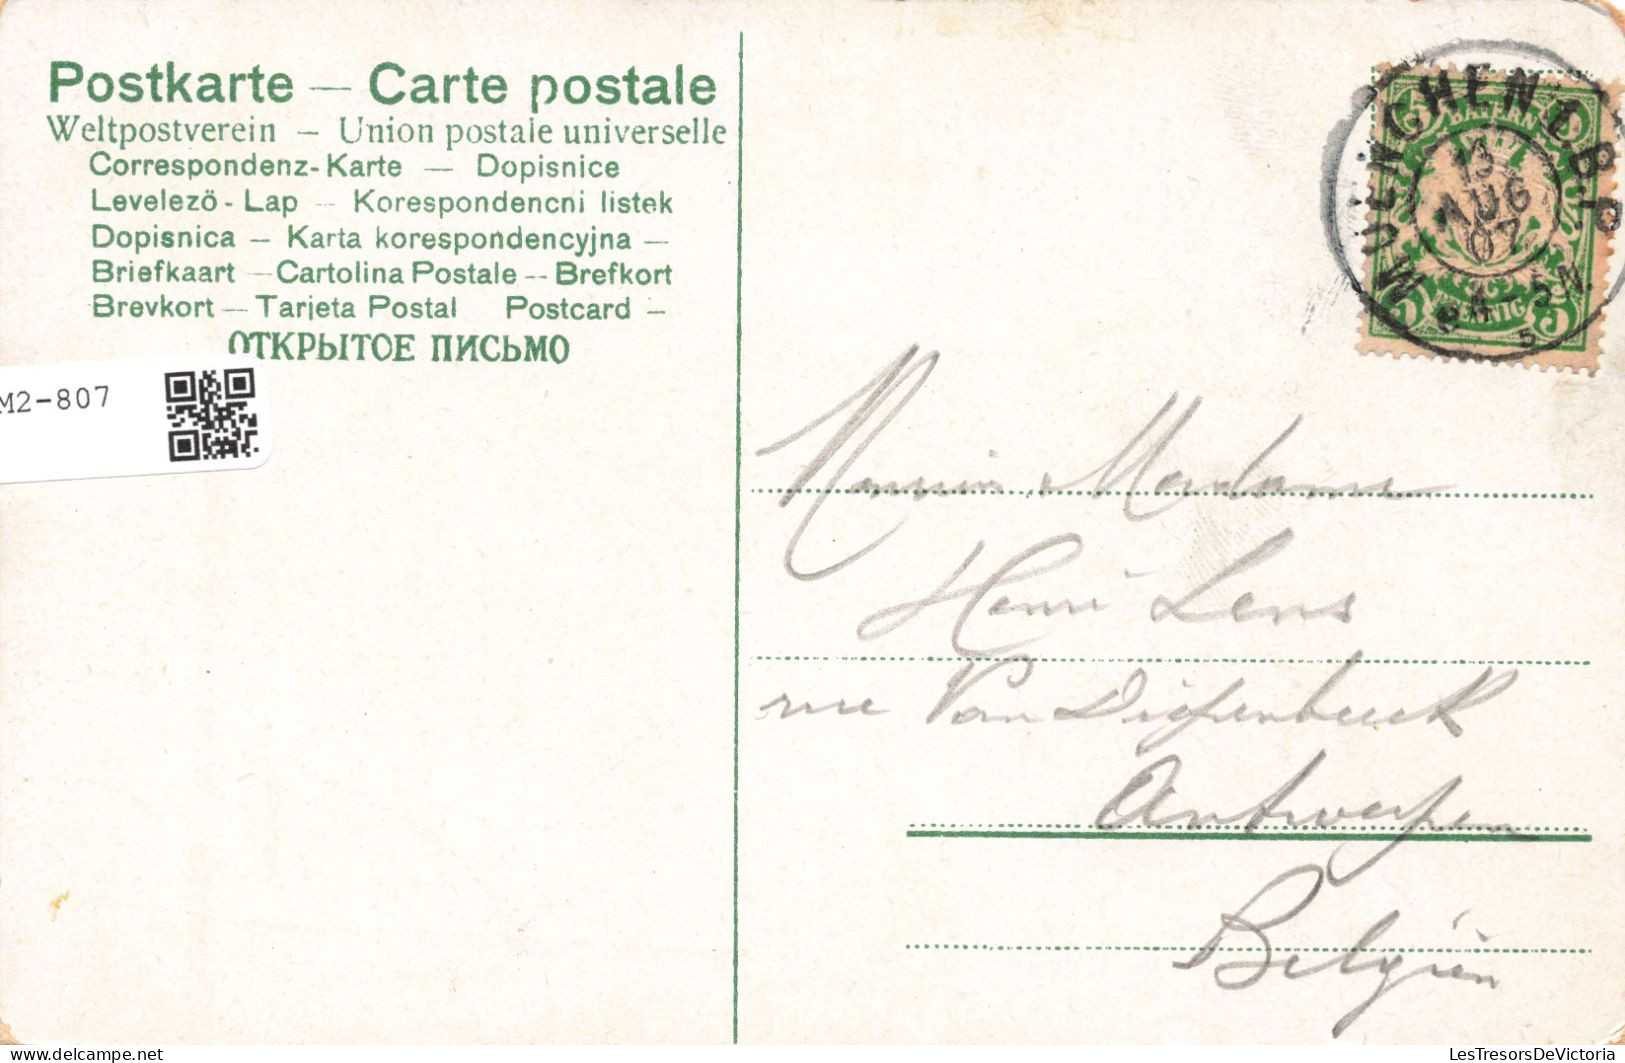 Postkarte — Carte postale
Weltpostverein — Union postale universelle
Correspondenz-Karte — Dopisnice
Levelező-Lap — Korespondencni listek
Dopisnica — Karta korespondencyjna —
Briefkaart — Cartolina Postale -- Brefkort
Brevkort — Tarjeta Postal Postcard —
ОТКРЫТОЕ ПИСЬМО
M2-807
MUENCHEN 1.B.P.
13
AUG
07
4-5N.
BAYERN
5 PFENNIG 5
Monsieur, Madame
Henri Lens
rue Van Diepenbeeck
Antwerpen
Belgien
delcampe.net
LesTresorsDeVictoria